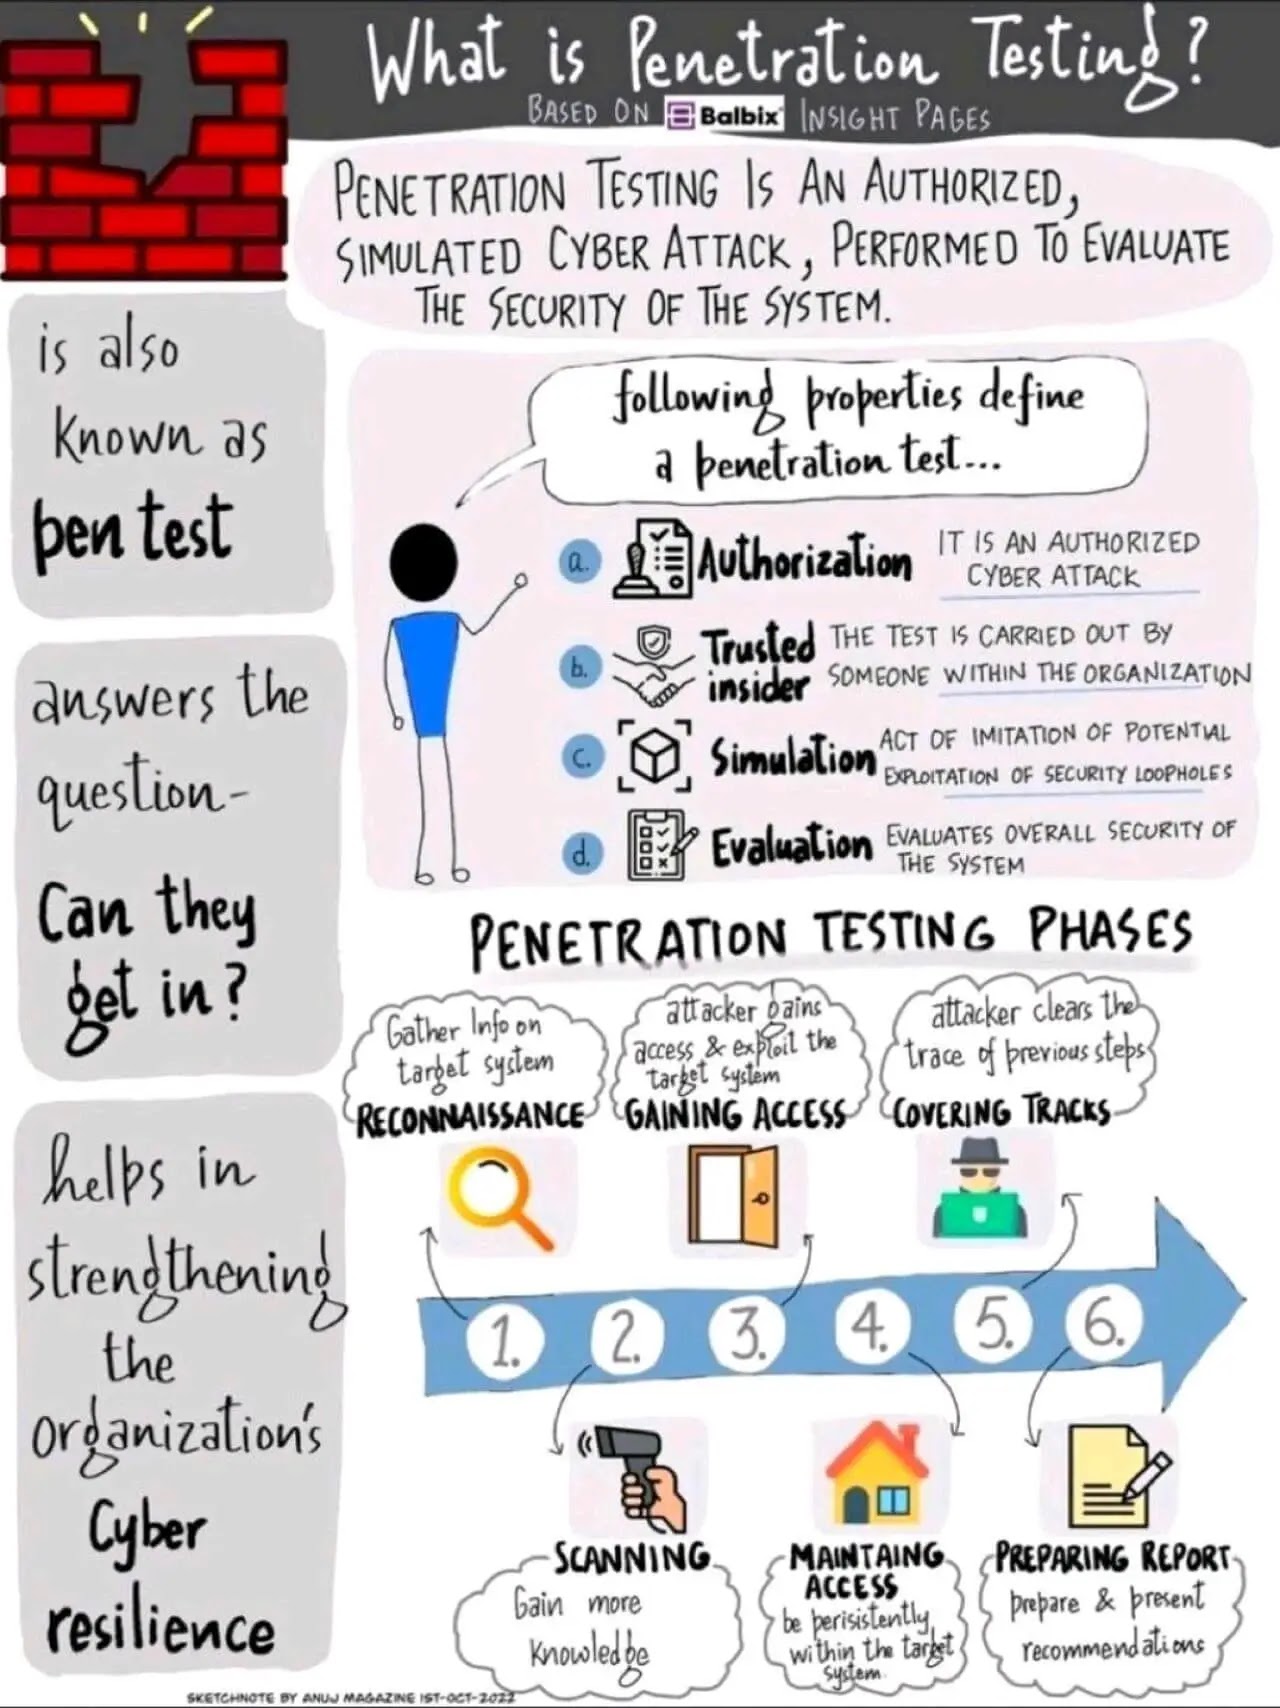 What is Penetration Testing?
BASED ON Balbix INSIGHT PAGES
PENETRATION TESTING IS AN AUTHORIZED,
SIMULATED CYBER ATTACK, PERFORMED TO EVALUATE
THE SECURITY OF THE SYSTEM.
is also
known as
pen test
answers the
question-
Can they
get in?
helps in
strengthening
the
organization's
Cyber
resilience
following properties define
a penetration test...
a. Authorization IT IS AN AUTHORIZED
CYBER ATTACK
b. Trusted
insider
THE TEST IS CARRIED OUT BY
SOMEONE WITHIN THE ORGANIZATION
c. Simulation ACT OF IMITATION OF POTENTIAL
EXPLOITATION OF SECURITY LOOPHOLES
d. Evaluation EVALUATES OVERALL SECURITY OF
THE SYSTEM
PENETRATION TESTING PHASES
Gather Info on
target system
RECONNAISSANCE
attacker gains
access & exploit the
target system
GAINING ACCESS
attacker clears the
trace of previous steps
COVERING TRACKS
1. 2. 3. 4. 5. 6.
SCANNING
Gain more
knowledge
MAINTAING
ACCESS
be perisistently
within the target
system.
PREPARING REPORT
prepare & present
recommendations
SKETCHNOTE BY ANUJ MAGAZINE 1ST-OCT-2022